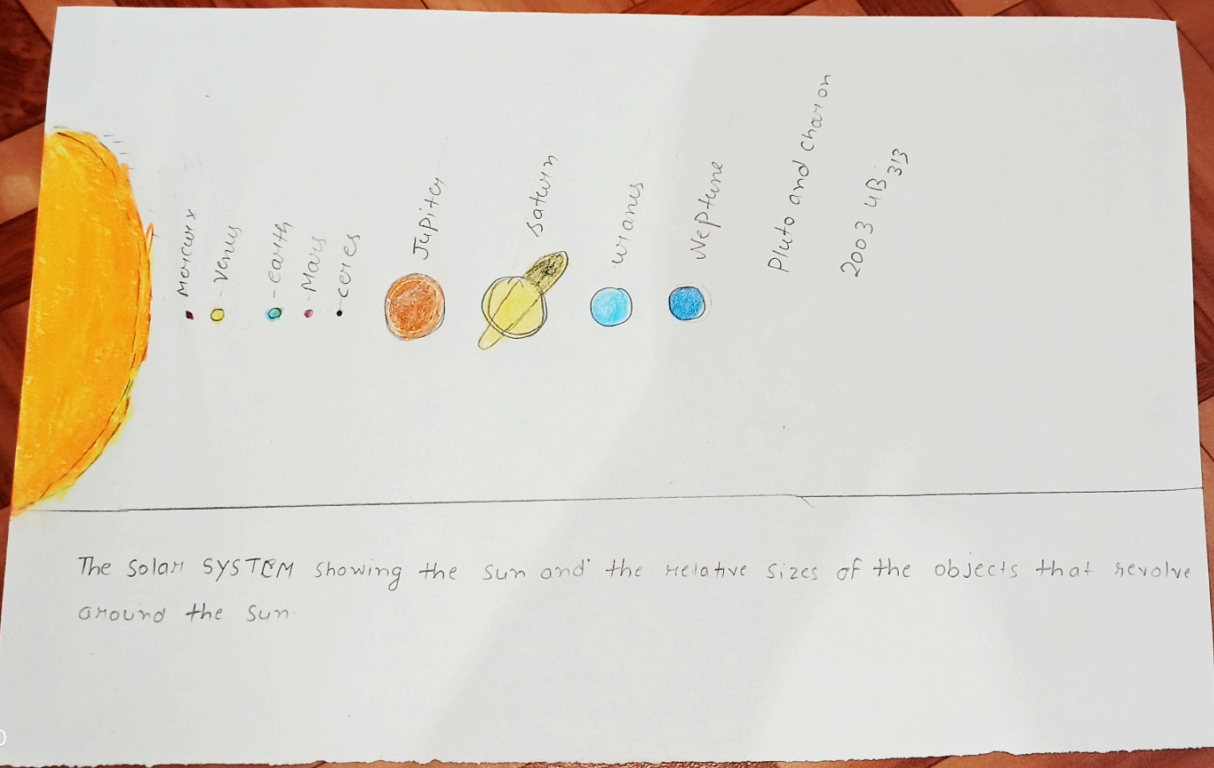 Mercury
- Venus
- earth
- Mars
- ceres
Jupiter
Saturn
Uranus
Neptune
Pluto and Charon
2003 UB 313
The Solar SYSTEM showing the sun and the relative sizes of the objects that revolve
around the Sun